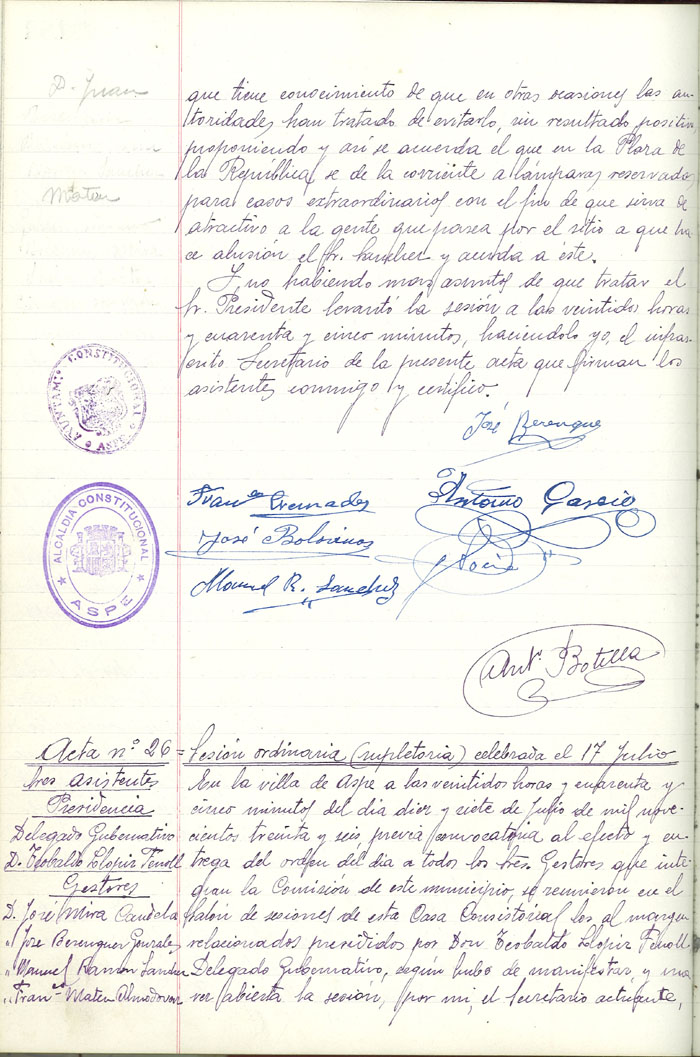 D. Juan
Mateu
que tiene conocimiento de que en otras ocasiones las au-
toridades han tratado de evitarlo, sin resultado positivo
proponiendo y asi se acuerda el que en la Plaza de
la República se de la corriente a lámparas reservadas
para casos extraordinarios con el fin de que sirva de
atractivo a la gente que pasea por el sitio a que ha-
ce alusión el Sr. Sanchez y acuda a éste.
Y no habiendo mas asuntos de que tratar el
Sr. Presidente levantó la sesión a las veintidos horas
y cuarenta y cinco minutos, haciéndolo yo, el infras-
crito Secretario de la presente acta que firman los
asistentes conmigo y certifico.
AYUNTAM. CONSTITUCIONAL
ASPE
José Berenguer
ALCALDIA CONSTITUCIONAL
ASPE
Franco Cremades
Antonio Garcia
José Bolvinos
Manuel R. Sanchez
Ant. Botella
Acta nº 26 = Sesión ordinaria (supletoria) celebrada el 17 Julio
tres asistentes
Presidencia
Delegado Gubernativo
D. Teobaldo Llopiz Tenoll
Gestores
D. José Mira Candela
" Jose Berenguer Gonzalez
" Manuel Ramon Sanchez
" Franco Mateu Almodovar
En la villa de Aspe a las veintidos horas y cuarenta y
cinco minutos del dia diez y siete de Julio de mil nove-
cientos treinta y seis, previa convocatoria al efecto y en-
trega del orden del dia a todos los Sres. Gestores que inte-
gran la Comisión de este municipio, se reunieron en el
salón de sesiones de esta Casa Consistorial los al margen
relacionados presididos por Don Teobaldo Llopiz Tenoll
Delegado Gubernativo, según hubo de manifestar, y una
vez abierta la sesión, por mi, el Secretario actuante,